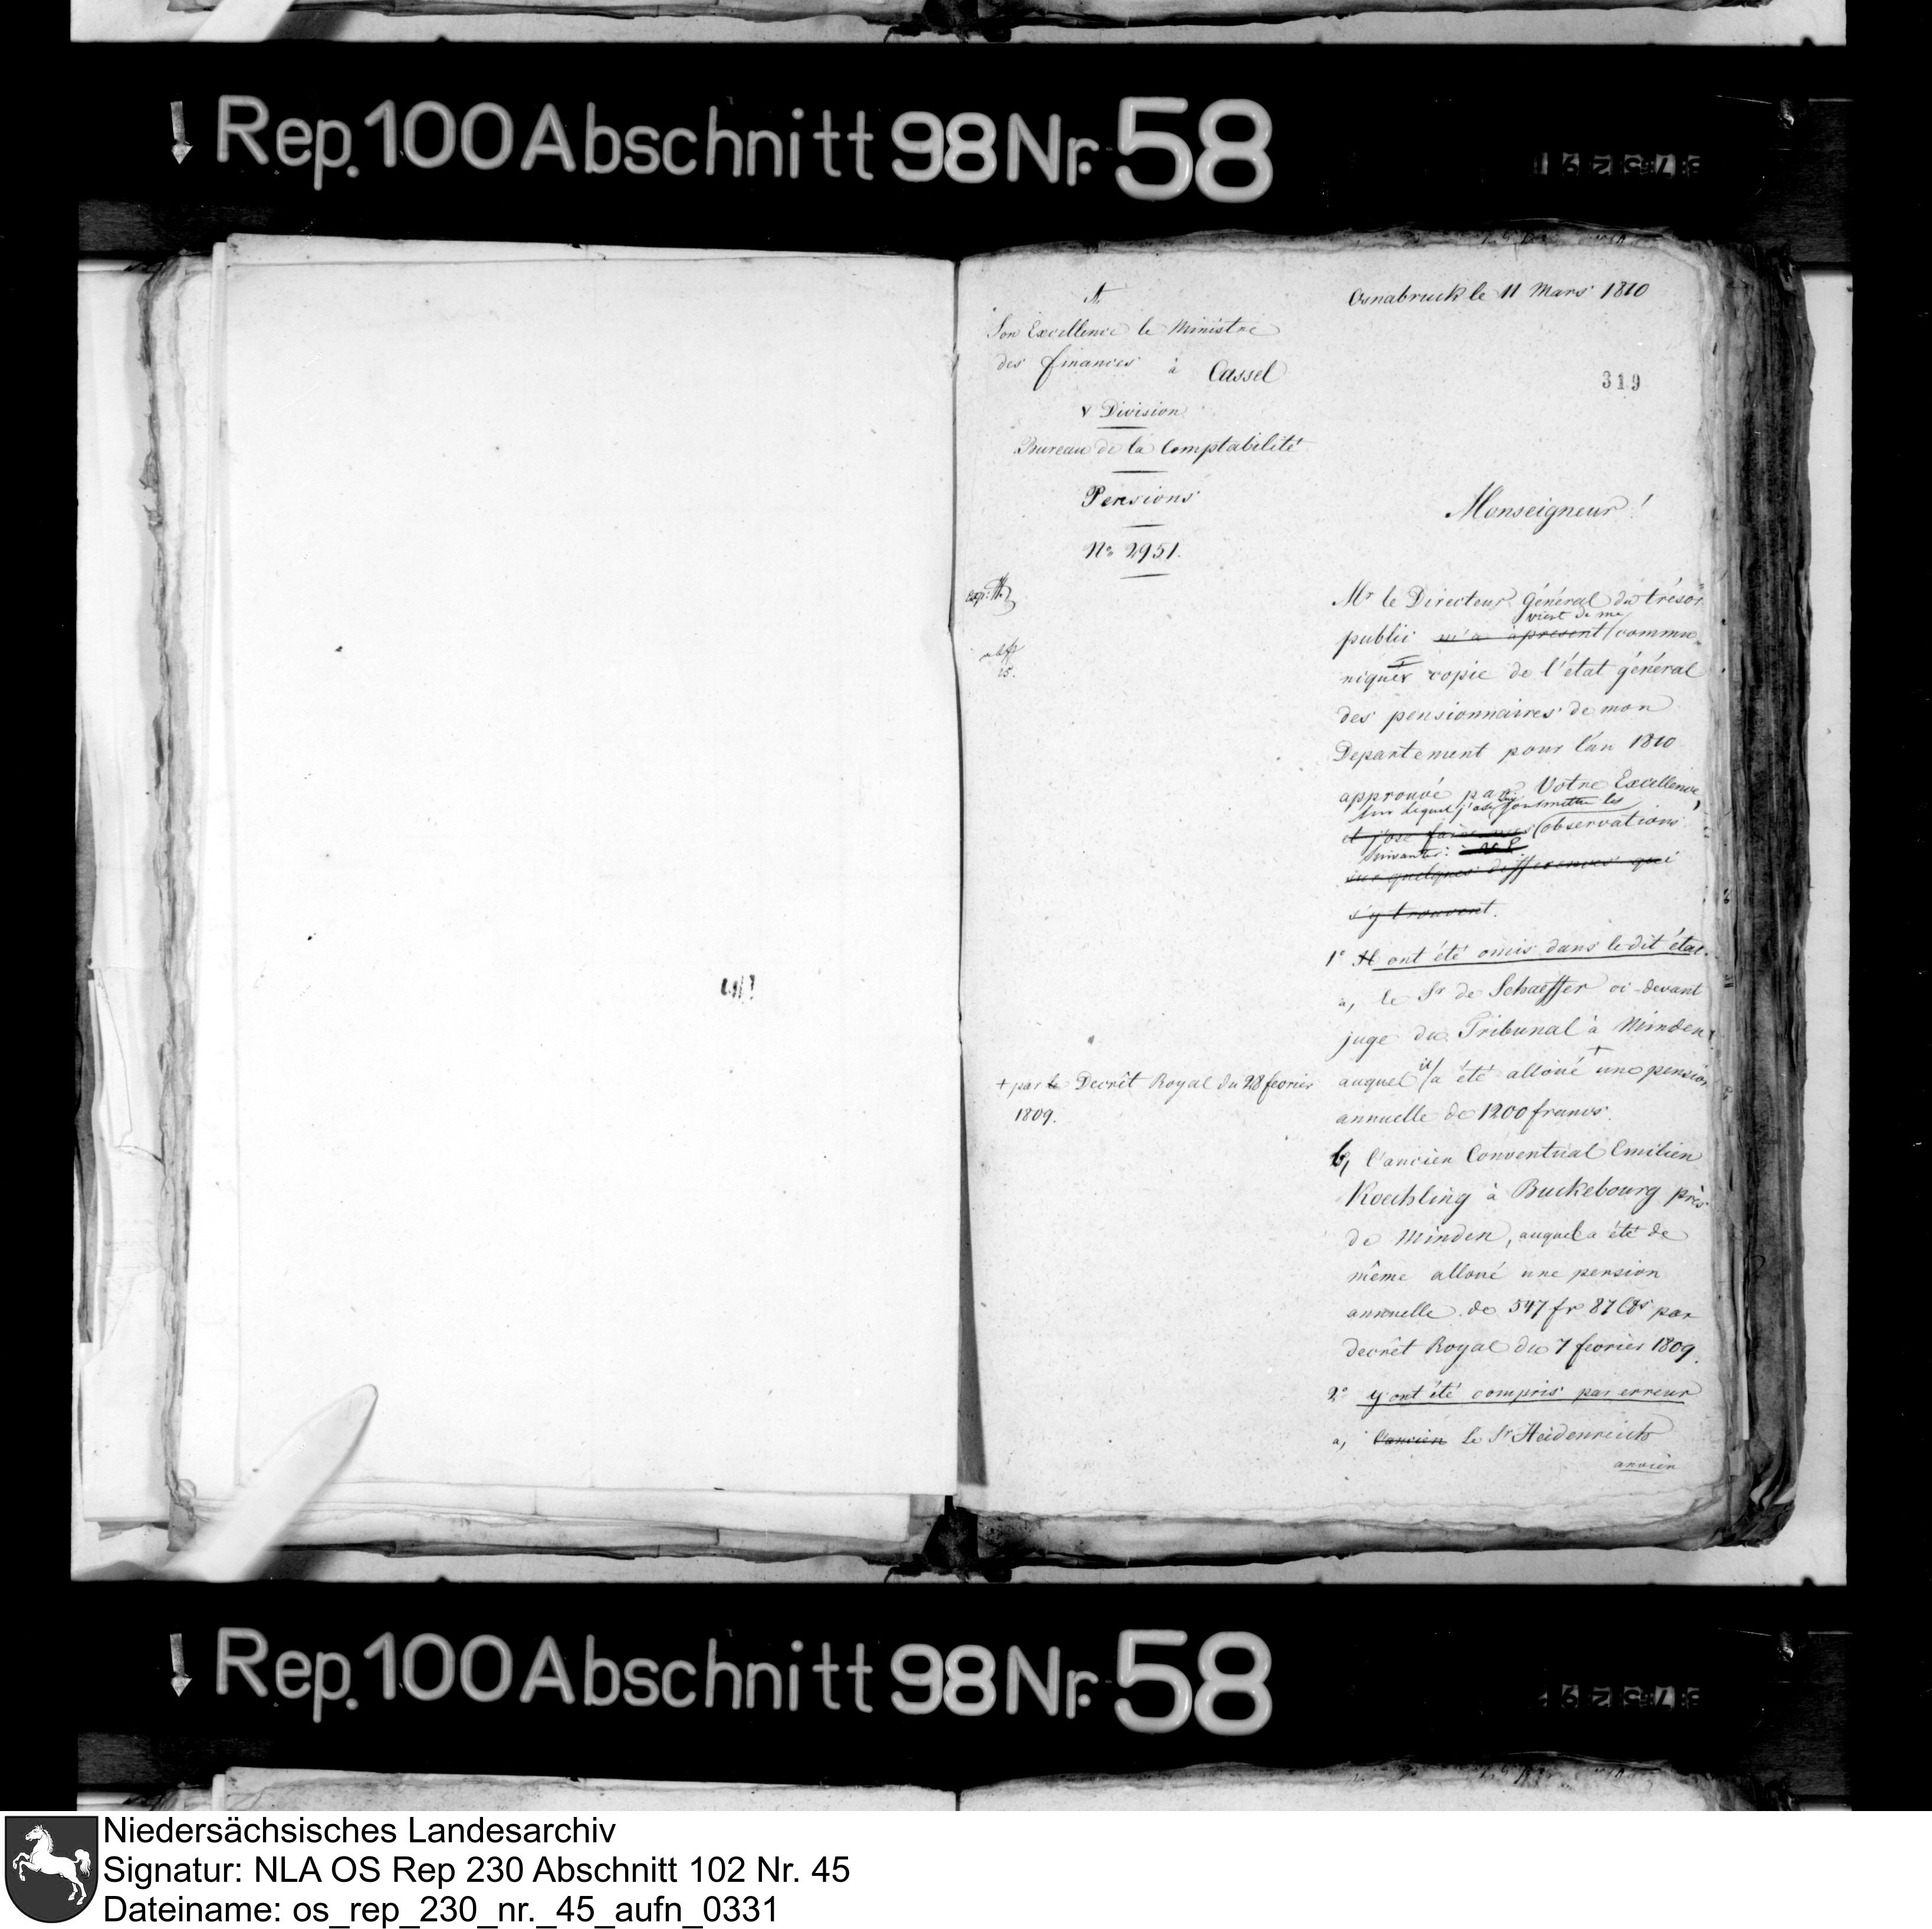 Rep. 100 Abschnitt 98 Nr. 58
A
Son Excellence le Ministre
des finances à Cassel
V Division
Bureau de la Comptabilité
Pensions
No 2951.
Osnabruck le 11 Mars 1810
319
Monseigneur!
Mr le Directeur Général du trésor
vient de me
public m'a à present commu
niquer copie de l'état général
des pensionnaires de mon
Departement pour l'an 1810
approuvé par Votre Excellence,
sur lequel j'ose soumettre les
et j'ose faire mes observations
suivantes:
sur quelques differences qui
s'y trouvent.
1o Il ont été omis dans le dit état.
a, le Sr de Schaeffer ci-devant
juge du Tribunal à Minden
auquel il a été alloué + une pension
+ par le Decrêt Royal du 28 fevrier
1809.
annuelle de 1200 francs.
b, l'ancien Conventual Emilien
Koechling à Buckebourg près
de Minden, auquel a été de
même alloué une pension
annuelle de 547 fr 87 Cts par
decrêt Royal du 7 fevrier 1809.
2o y ont été compris par erreur
a, l'ancien le Sr Heidenreich
ancien
Rep. 100 Abschnitt 98 Nr. 58
Niedersächsisches Landesarchiv
Signatur: NLA OS Rep 230 Abschnitt 102 Nr. 45
Dateiname: os_rep_230_nr._45_aufn_0331